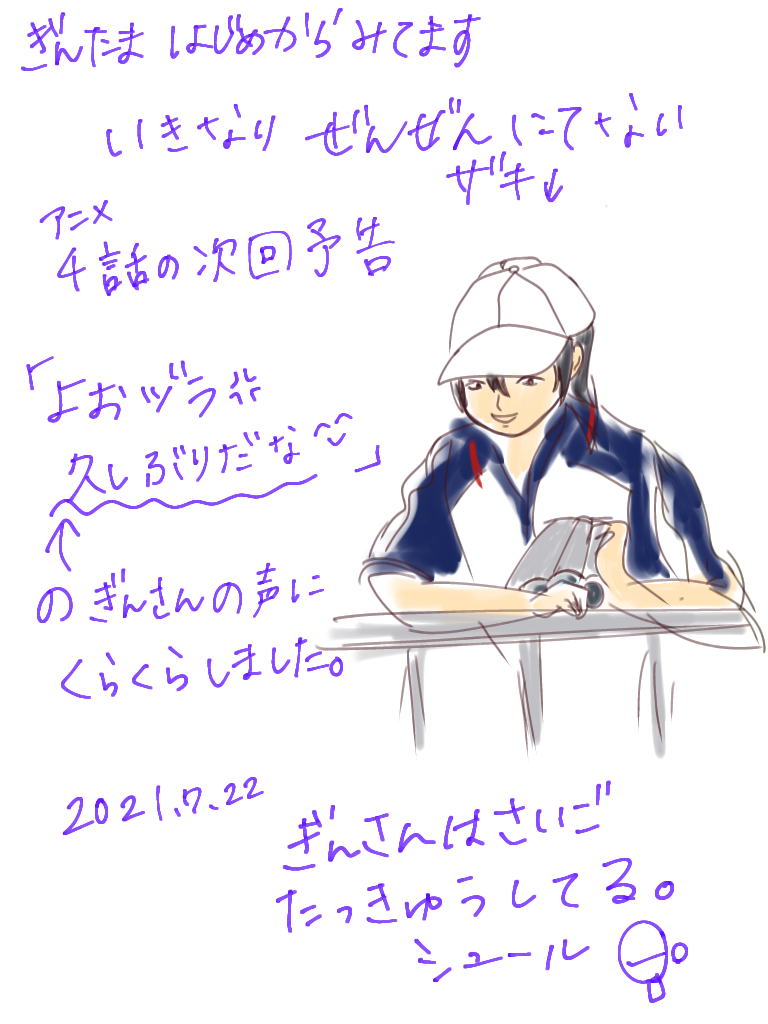 ぎんたま はじめからみてます
いきなり ぜんぜん にてさない
ザキ↓
アニメ
4話の次回予告
「よおヅラ
久しぶりだな」
↑
の ぎんさんの声に
くらくらしました。
2021.7.22
ぎんさんはさいご
たっきゅうしてる。
シュール